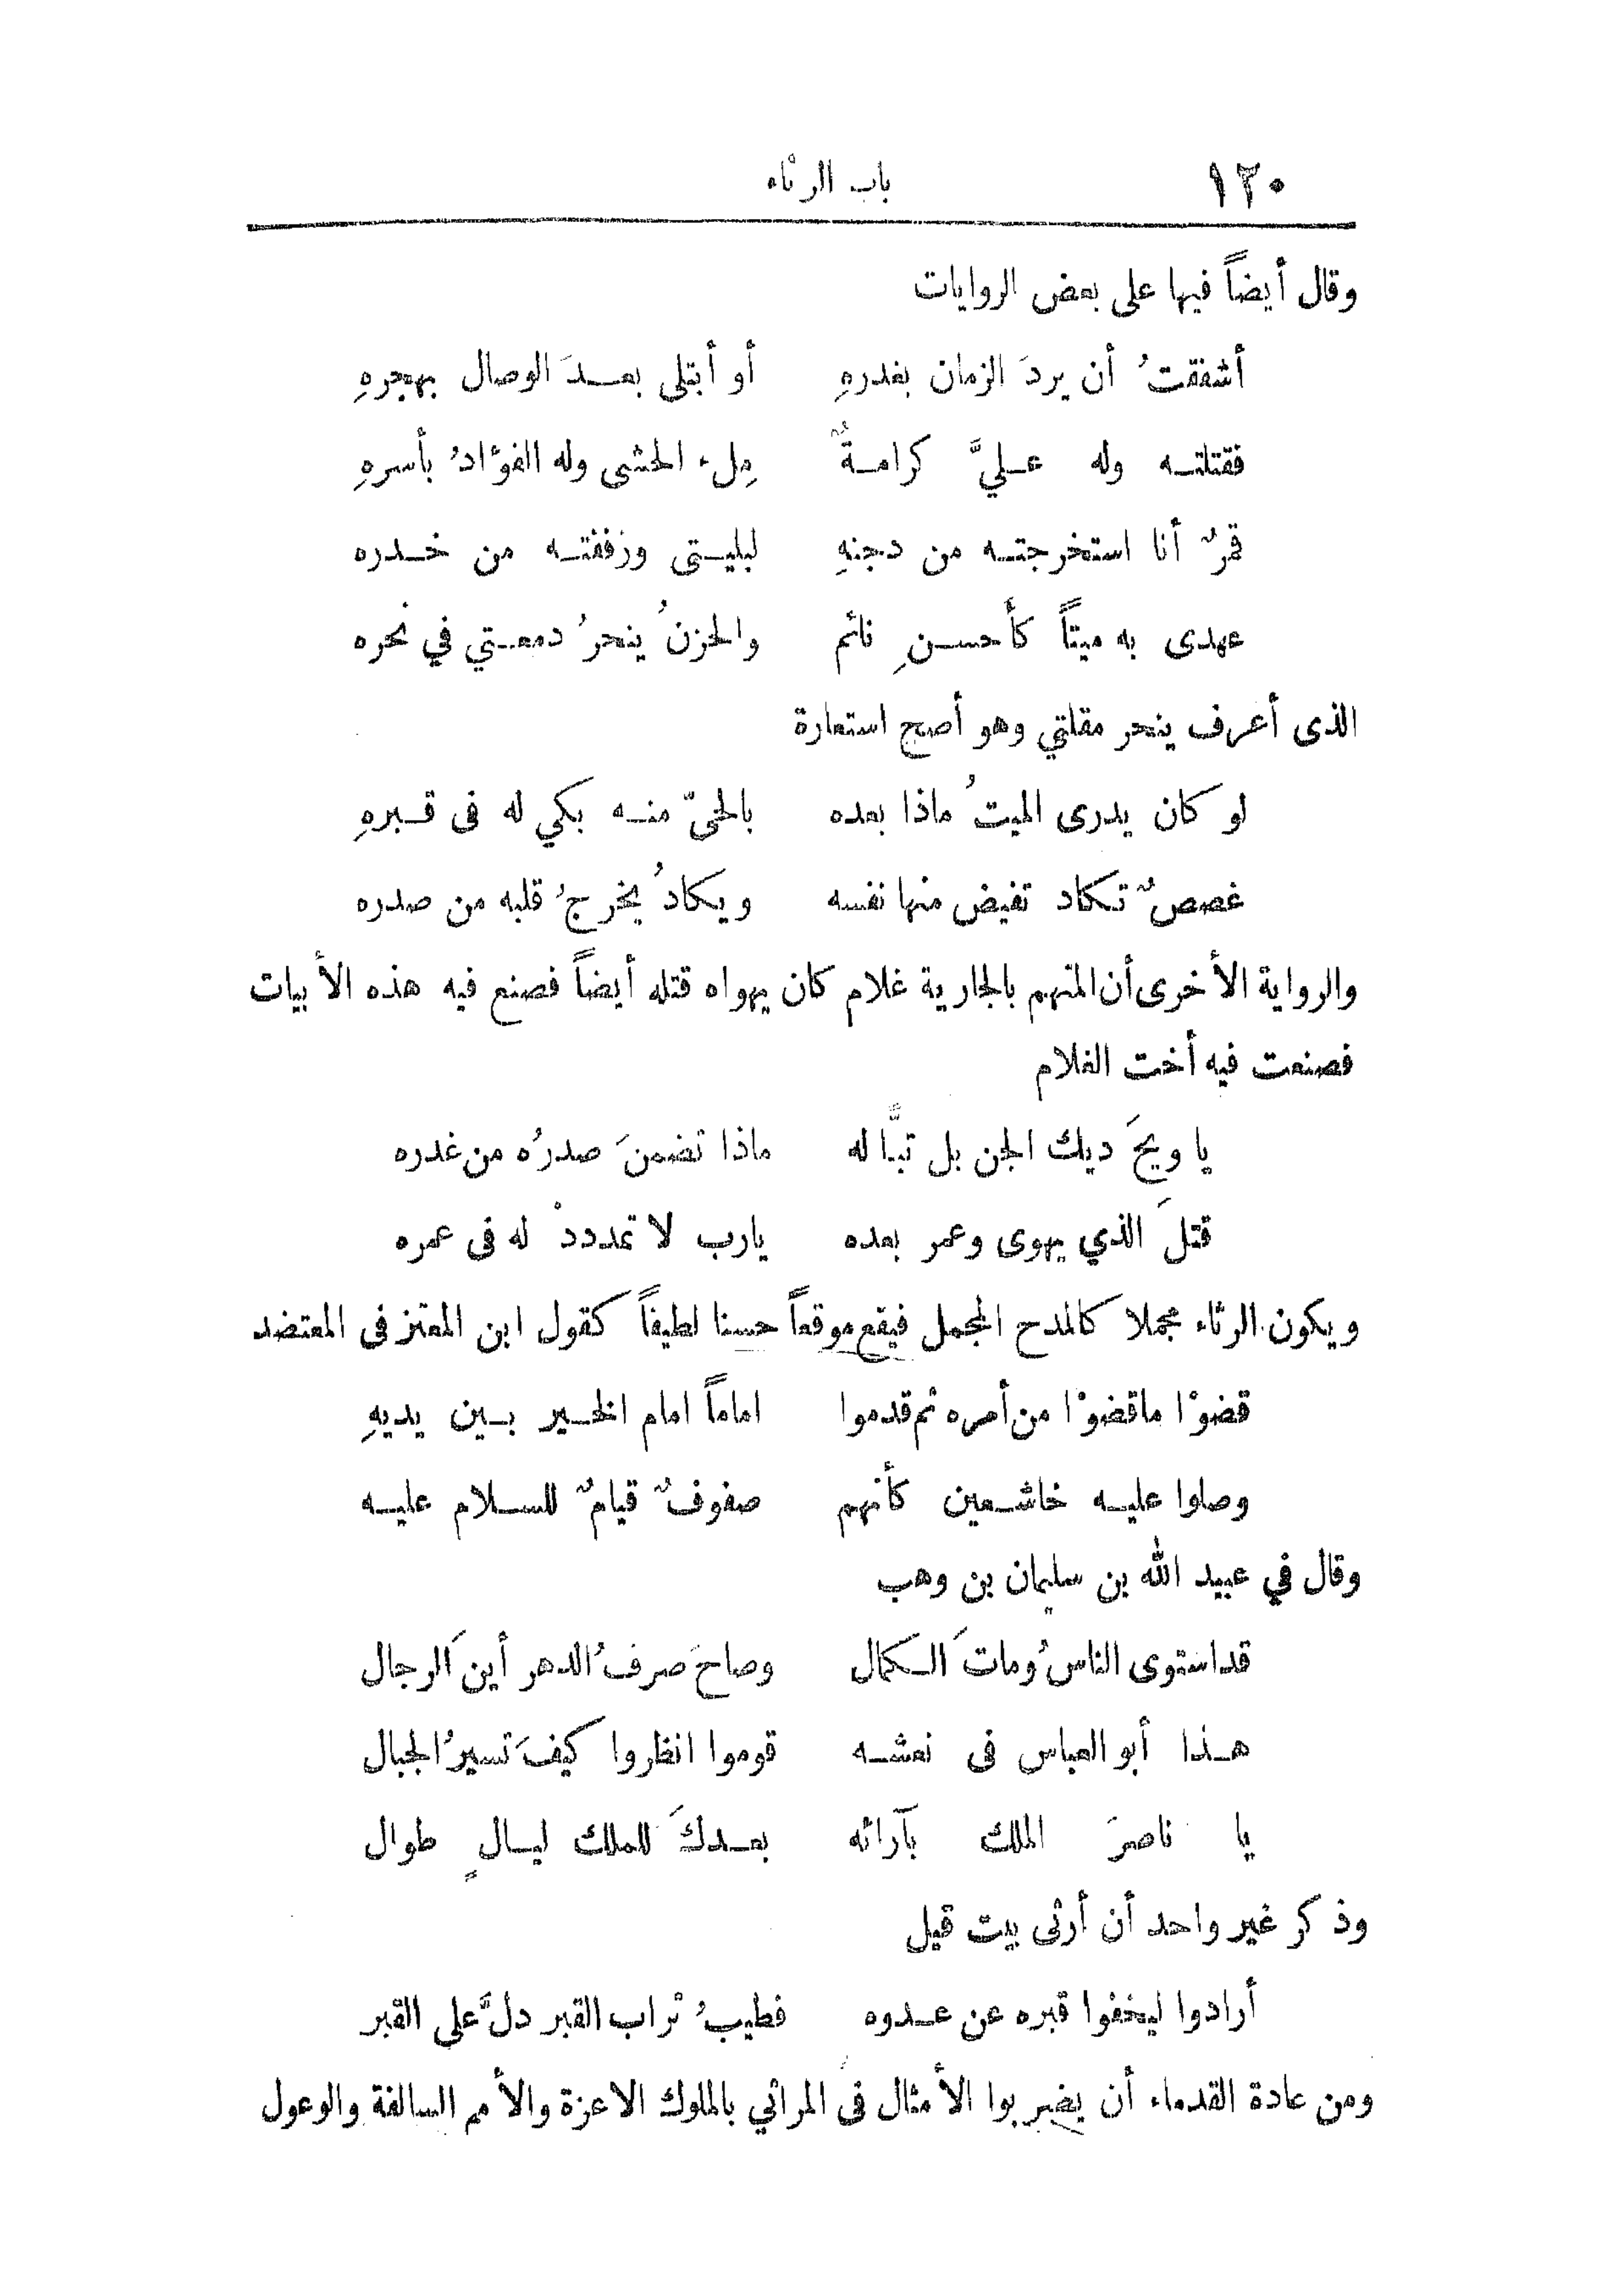 ١٢٠ باب الرثاء
وقال أيضاً فيها على بعض الروايات
أشفقتُ أن يردَ الزمان بغدرهِ أو أبتلى بعدَ الوصال بهجرهِ
فقتلته وله عليَّ كرامةٌ مِلء الحشى وله الفؤادُ بأسرهِ
قمرٌ أنا استخرجته من دجنهِ لبليتى وزففته من خدره
عهدى به ميتاً كأحسنِ نائم والحزنُ ينحرُ دمعتي في نحره
الذى أعرف ينحر مقلتي وهو أصح استعارة
لو كان يدرى الميتُ ماذا بعده بالحيّ منه بكي له فى قبرهِ
غصصٌ تكاد تفيض منها نفسه ويكادُ يخرجُ قلبه من صدره
والرواية الأخرى أن المتهم بالجارية غلام كان يهواه قتله أيضاً فصنع فيه هذه الأبيات
فصنعت فيه أخت الغلام
يا ويحَ ديك الجن بل تبًّا له ماذا تضمنَ صدرُه من غدره
قتلَ الذي يهوى وعمر بعده يارب لا تمددْ له فى عمره
ويكون الرثاء مجملا كالمدح المجمل فيقع موقعاً حسنا لطيفاً كقول ابن المعتز فى المعتضد
قضوْا ماقضوْا من أمره ثم قدموا اماماً امام الخير بين يديهِ
وصلوا عليه خاشعين كأنهم صفوفٌ قيامٌ للسلام عليه
وقال في عبيد الله بن سليمان بن وهب
قد استوى الناسُ وماتَ الكمال وصاحَ صرفُ الدهر أينَ الرجال
هذا أبو العباس فى نعشه قوموا انظروا كيفَ تسيرُ الجبال
يا ناصرَ الملك بآرائه بعدكَ للملك ليالٍ طوال
وذكر غير واحد أن أرثى بيت قيل
أرادوا ليخفوا قبره عن عدوه فطيبُ تراب القبر دلَّ على القبر
ومن عادة القدماء أن يضربوا الأمثال فى المراثي بالملوك الاعزة والأمم السالفة والوعول